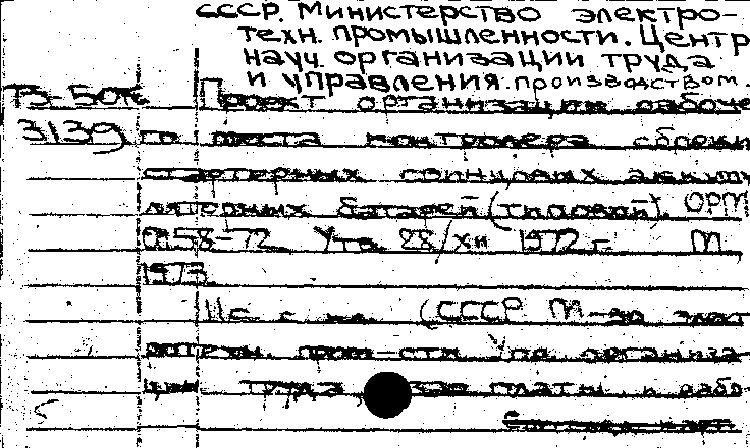 СССР. Министерство электро-
техн. промышленности. Центр
науч. организации труда
и управления производством.
Проект организации рабоче
3139 го места контролера сборки
стартерных свинцовых аккиму
ляторных батарей (типовой). ОРМ
0158-72. Утв. 28/XII 1972 г. М.
1973.
11 с. с ил. (СССР М-во элект
ротехн. пром-сти Упр. организа
ции труда, зар платы и рабо